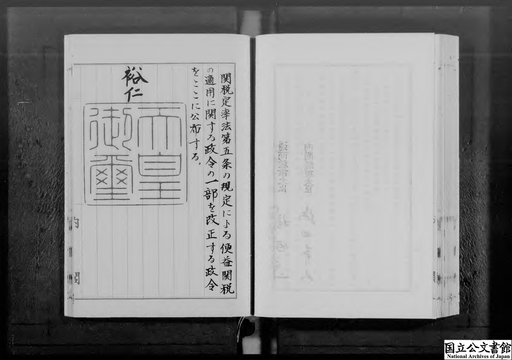 関税定率法第五条の規定による便益関税
の適用に関する政令の一部を改正する政令
をここに公布する。
裕仁
天皇
御璽
内閣
国立公文書館
National Archives of Japan